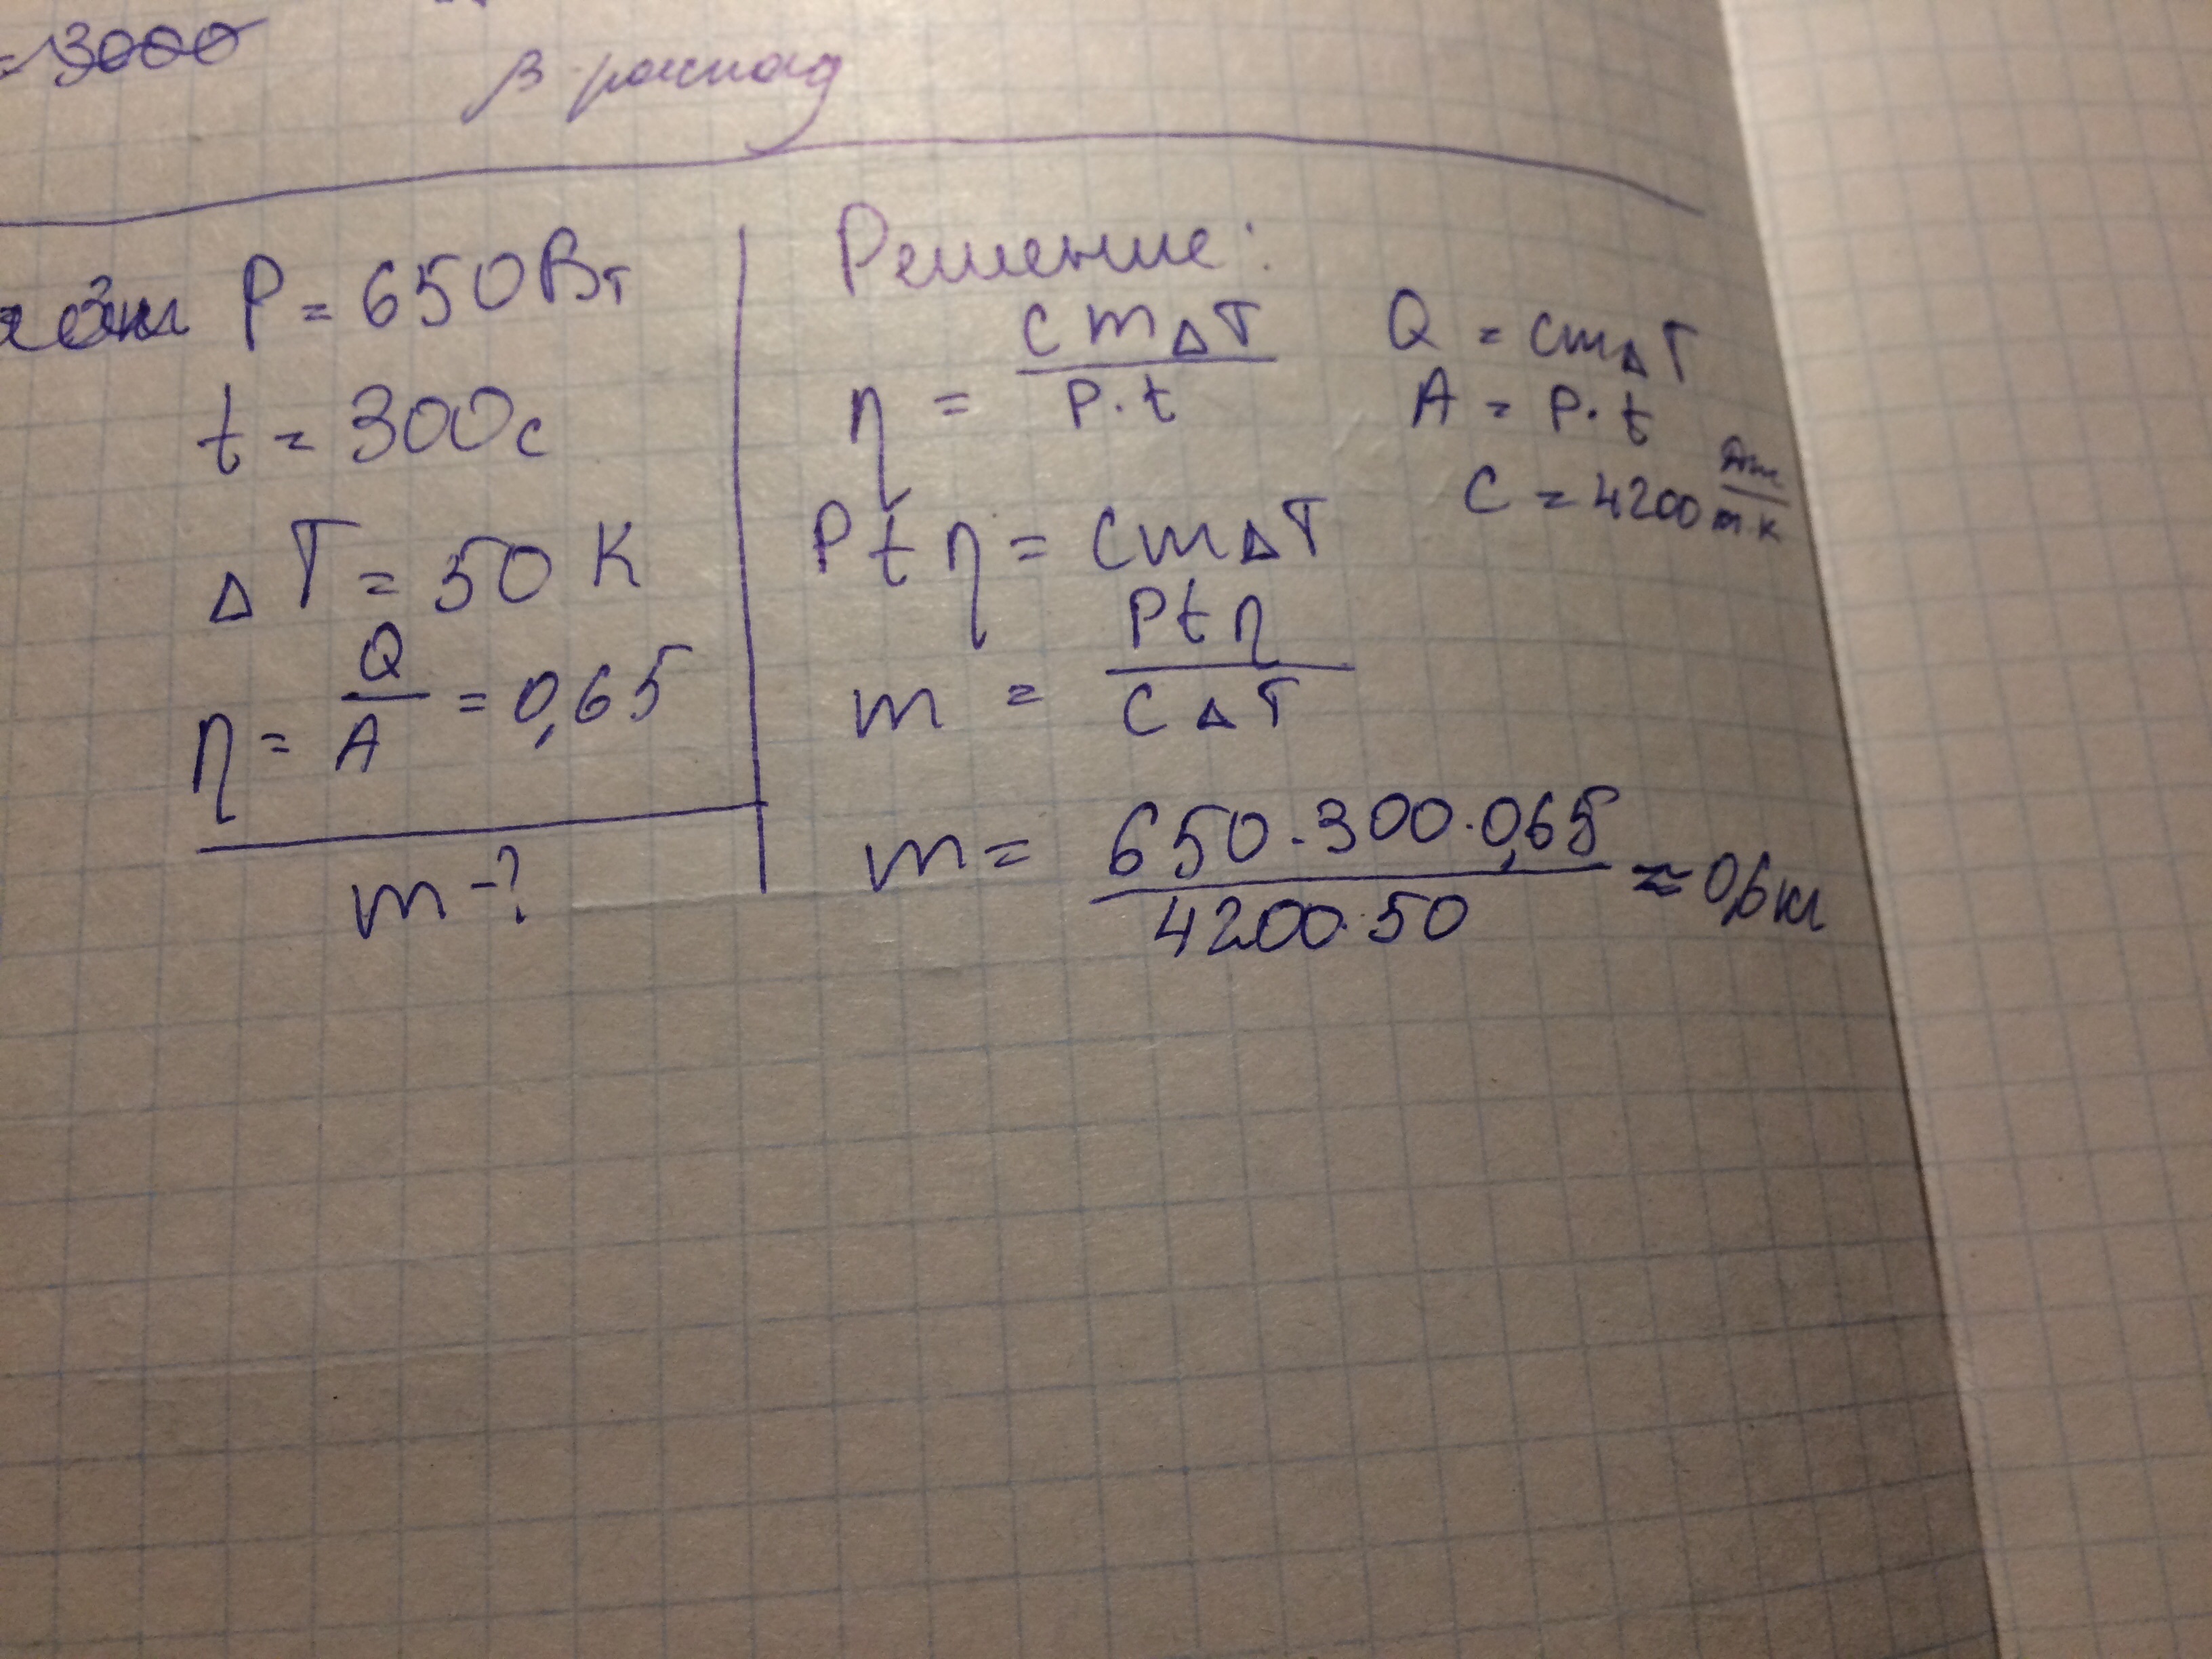 = 3000
β-распад
P = 650 Вт
t = 300 с
ΔT = 50 K
η = Q/A = 0,65
m - ?
Решение:
η = cmΔT / P·t
Q = cmΔT
A = P·t
C = 4200
Ptη = cmΔT
m = Ptη / CΔT
m = 650·300·0,65 / 4200·50 ≈ 0,6 кг